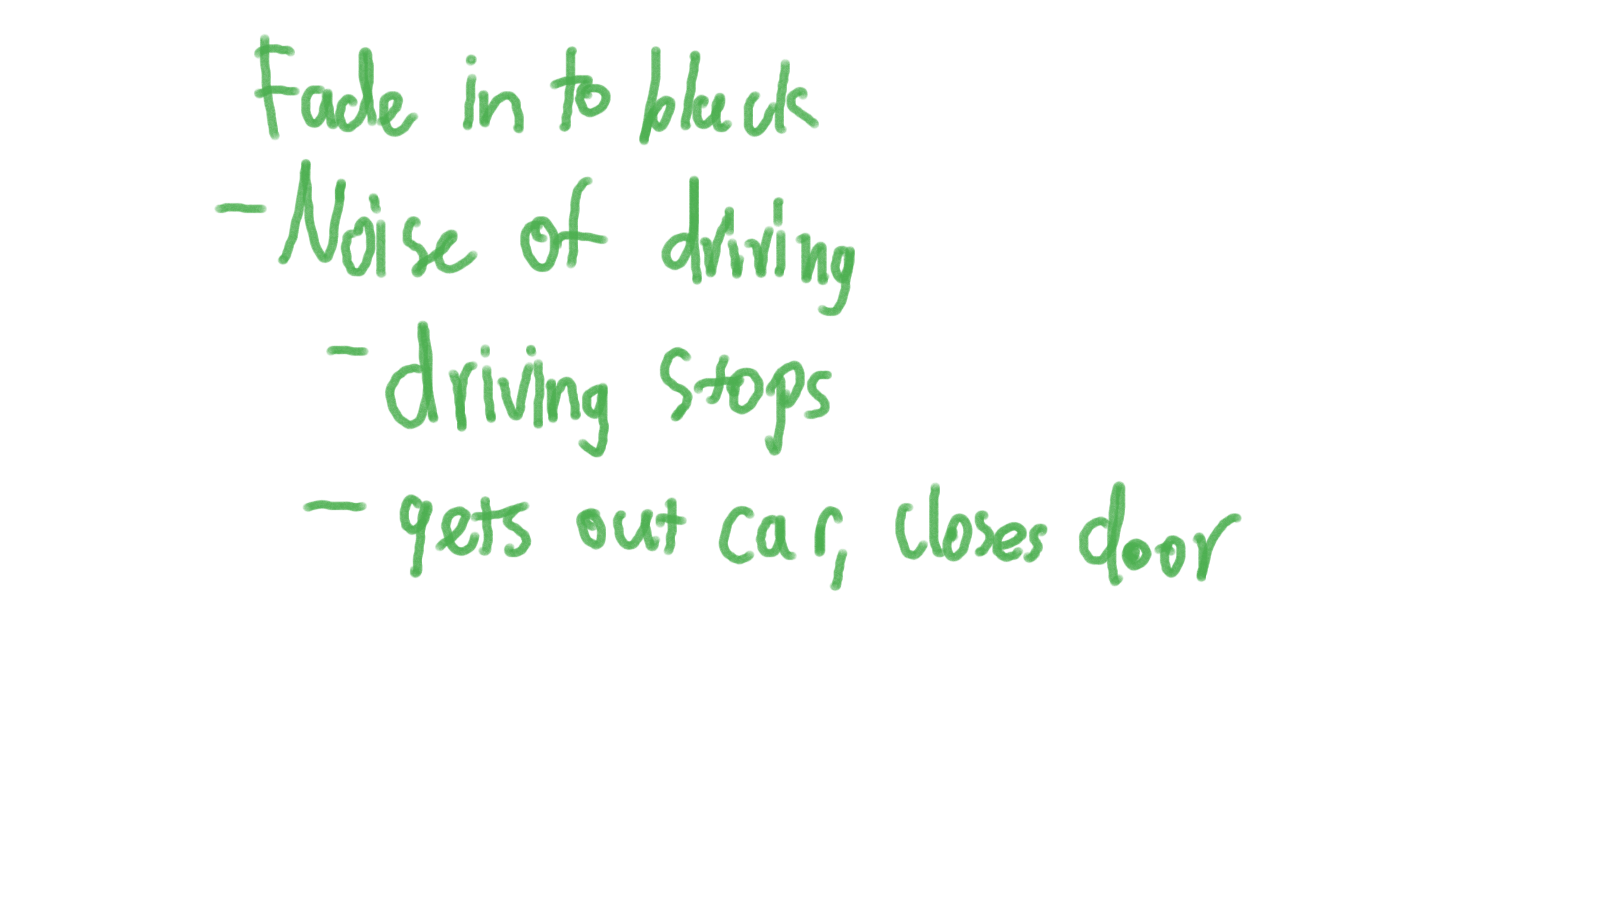 Fade in to black
- Noise of driving
- driving stops
- gets out car, closes door